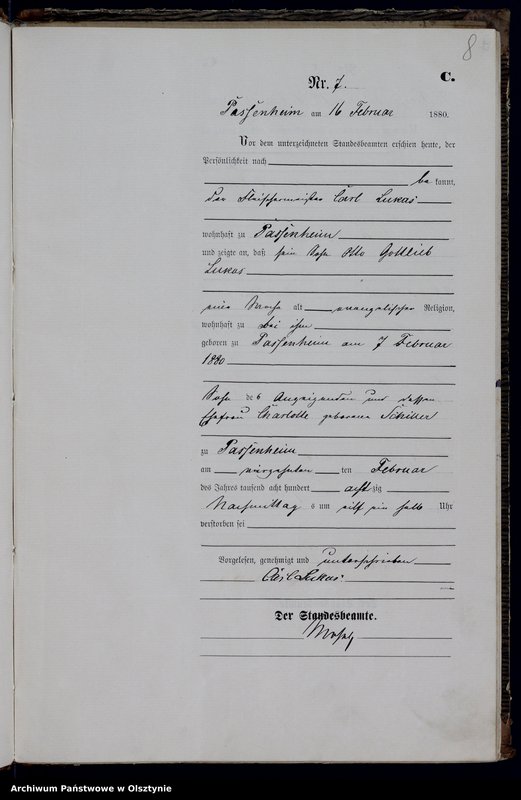 8
C.
Nr. 7.
Passenheim am 16 Februar 1880.
Vor dem unterzeichneten Standesbeamten erschien heute, der
Persönlichkeit nach
be kannt,
der Fleischermeister Carl Lukas
wohnhaft zu Passenheim
und zeigte an, daß sein Sohn Otto Gottlieb
Lukas
eine Woche alt evangelischer Religion,
wohnhaft zu bei ihm
geboren zu Passenheim am 7 Februar
1880
Sohn des Anzeigenden und dessen
Ehefrau Charlotte geborene Schiller
zu Passenheim
am vierzehnten ten Februar
des Jahres tausend acht hundert acht zig
Nachmittag s um elf ein halb Uhr
verstorben sei
Vorgelesen, genehmigt und unterschrieben
Carl Lukas
Der Standesbeamte.
Archiwum Państwowe w Olsztynie